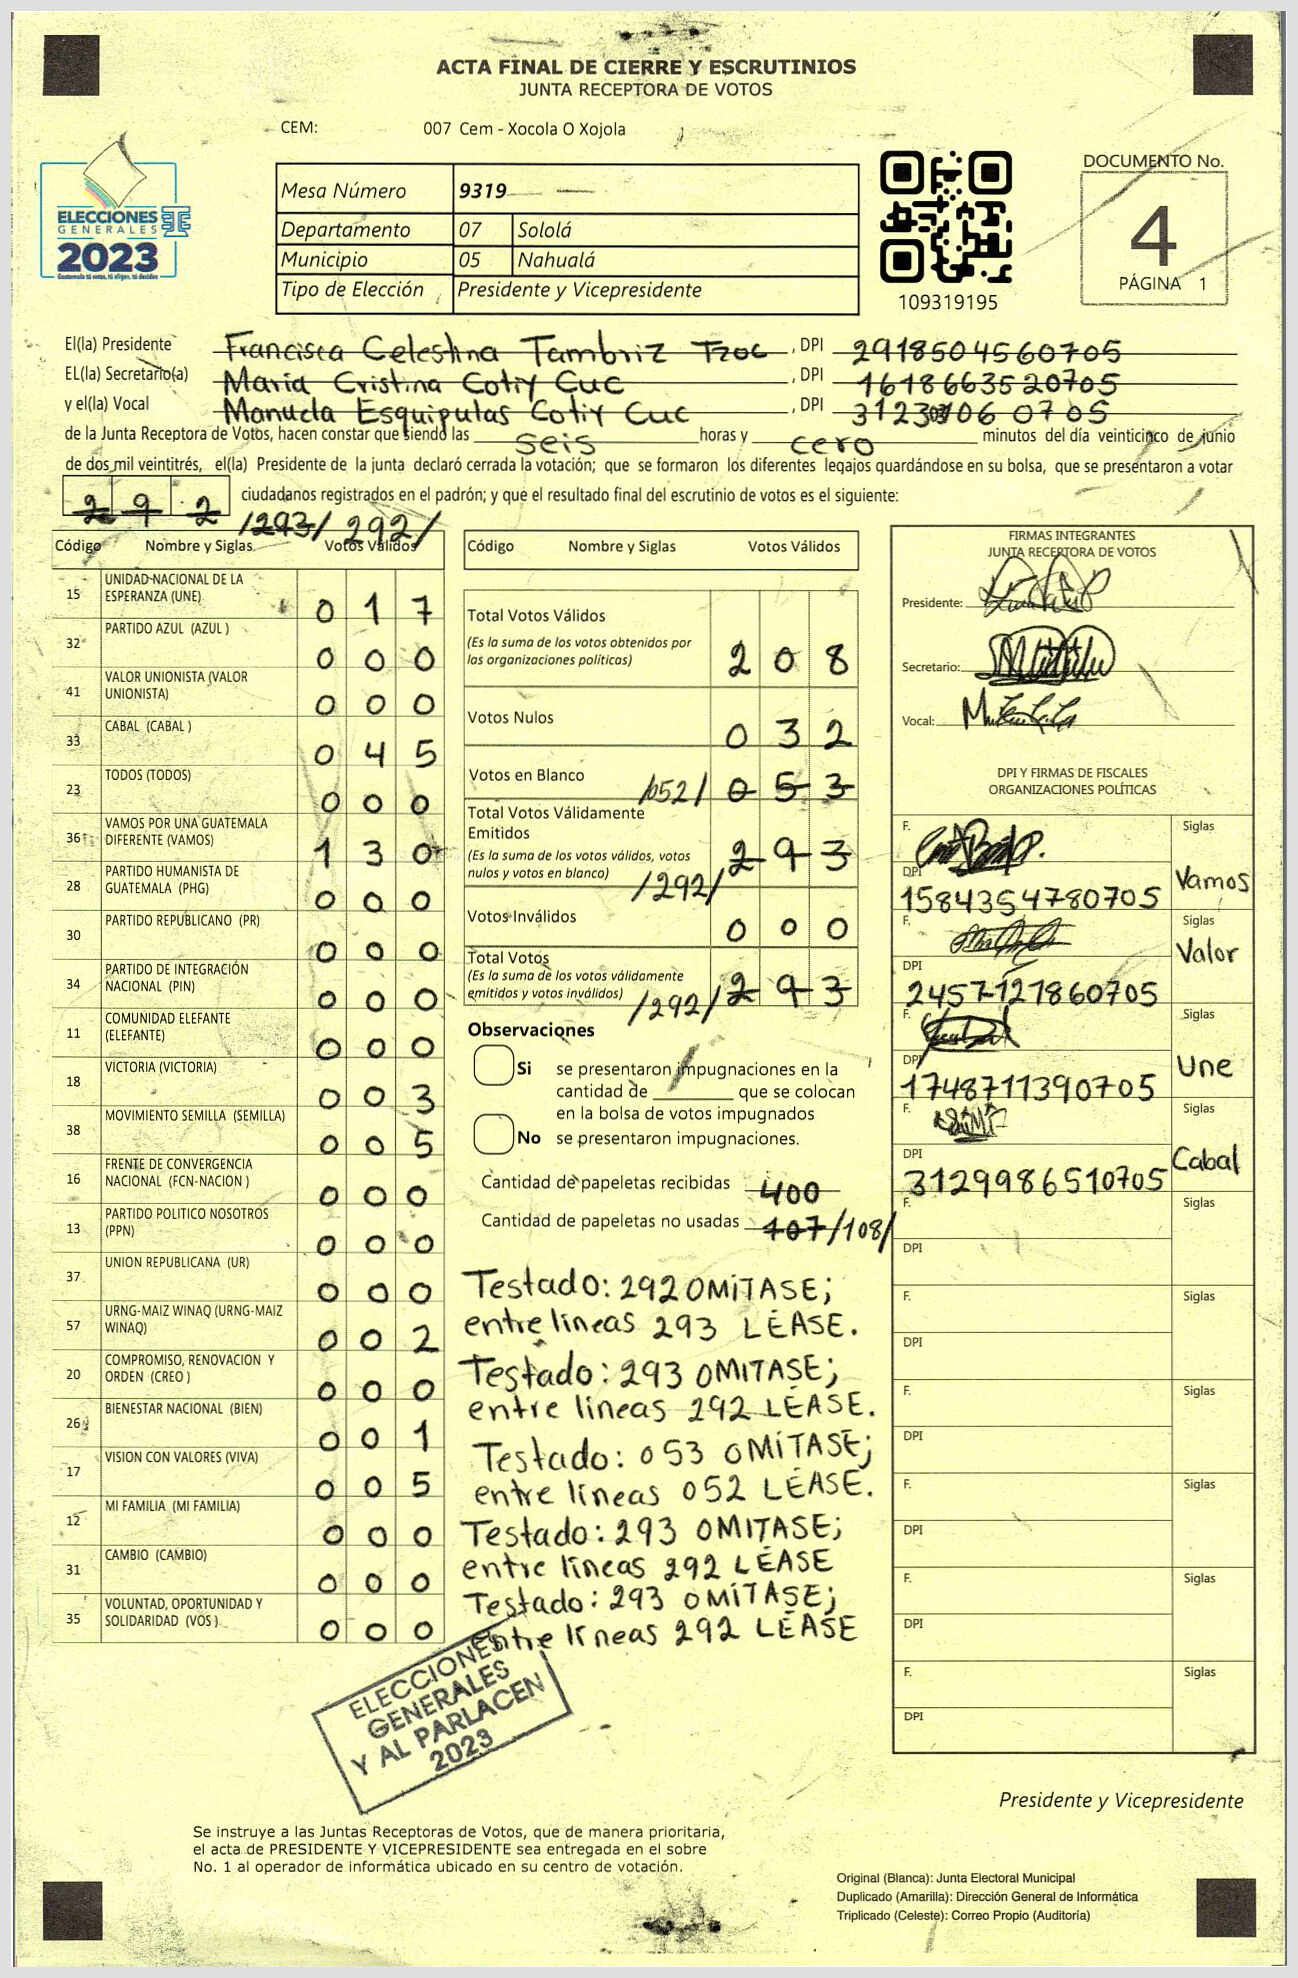 ACTA FINAL DE CIERRE Y ESCRUTINIOS
JUNTA RECEPTORA DE VOTOS
CEM: 007 Cem - Xocola O Xojola
ELECCIONES
GENERALES
2023
Guatemala tú votas, tú eliges, tú decides
Mesa Número 9319
Departamento 07 Sololá
Municipio 05 Nahualá
Tipo de Elección Presidente y Vicepresidente
109319195
DOCUMENTO No.
4
PÁGINA 1
El(la) Presidente Francisca Celestina Tambriz Tzoc , DPI 2918504560705
EL(la) Secretario(a) María Cristina Cotiy Cuc , DPI 1618663520705
y el(la) Vocal Manuela Esquipulas Cotiy Cuc , DPI
de la Junta Receptora de Votos, hacen constar que siendo las seis horas y cero minutos del día veinticinco de junio
de dos mil veintitrés, el(la) Presidente de la junta declaró cerrada la votación; que se formaron los diferentes legajos guardándose en su bolsa, que se presentaron a votar
292 ciudadanos registrados en el padrón; y que el resultado final del escrutinio de votos es el siguiente:
/293/ 292/
Código Nombre y Siglas Votos Válidos
15 UNIDAD NACIONAL DE LA ESPERANZA (UNE) 0 1 7
32 PARTIDO AZUL (AZUL ) 0 0 0
41 VALOR UNIONISTA (VALOR UNIONISTA) 0 0 0
33 CABAL (CABAL ) 0 4 5
23 TODOS (TODOS) 0 0 0
36 VAMOS POR UNA GUATEMALA DIFERENTE (VAMOS) 1 3 0
28 PARTIDO HUMANISTA DE GUATEMALA (PHG) 0 0 0
30 PARTIDO REPUBLICANO (PR) 0 0 0
34 PARTIDO DE INTEGRACIÓN NACIONAL (PIN) 0 0 0
11 COMUNIDAD ELEFANTE (ELEFANTE) 0 0 0
18 VICTORIA (VICTORIA) 0 0 3
38 MOVIMIENTO SEMILLA (SEMILLA) 0 0 5
16 FRENTE DE CONVERGENCIA NACIONAL (FCN-NACION ) 0 0 0
13 PARTIDO POLITICO NOSOTROS (PPN) 0 0 0
37 UNION REPUBLICANA (UR) 0 0 0
57 URNG-MAIZ WINAQ (URNG-MAIZ WINAQ) 0 0 2
20 COMPROMISO, RENOVACION Y ORDEN (CREO ) 0 0 0
26 BIENESTAR NACIONAL (BIEN) 0 0 1
17 VISION CON VALORES (VIVA) 0 0 5
12 MI FAMILIA (MI FAMILIA) 0 0 0
31 CAMBIO (CAMBIO) 0 0 0
35 VOLUNTAD, OPORTUNIDAD Y SOLIDARIDAD (VOS ) 0 0 0
Código Nombre y Siglas Votos Válidos
Total Votos Válidos
(Es la suma de los votos obtenidos por
las organizaciones políticas) 2 0 8
Votos Nulos 0 3 2
Votos en Blanco /052/ 0 5 3
Total Votos Válidamente
Emitidos
(Es la suma de los votos válidos, votos
nulos y votos en blanco) /292/ 2 9 3
Votos Inválidos 0 0 0
Total Votos
(Es la suma de los votos válidamente
emitidos y votos inválidos) /292/ 2 9 3
Observaciones
Si se presentaron impugnaciones en la
cantidad de / que se colocan
en la bolsa de votos impugnados
No se presentaron impugnaciones.
Cantidad de papeletas recibidas 400
Cantidad de papeletas no usadas 107 /108/
Testado: 292 OMÍTASE;
entre lineas 293 LÉASE.
Testado: 293 OMITASE;
entre lineas 292 LÉASE.
Testado: 053 OMÍTASE;
entre líneas 052 LÉASE.
Testado: 293 OMITASE;
entre líneas 292 LÉASE
Testado: 293 OMÍTASE;
entre líneas 292 LÉASE
FIRMAS INTEGRANTES
JUNTA RECEPTORA DE VOTOS
Presidente:
Secretario:
Vocal:
DPI Y FIRMAS DE FISCALES
ORGANIZACIONES POLÍTICAS
F. Siglas
DPI Vamos
1584354780705
F. Siglas
DPI Valor
2457121860705
F. Siglas
DPI Une
1748711390705
F. Siglas
DPI Cabal
3129986510705
F. Siglas
DPI
F. Siglas
DPI
F. Siglas
DPI
F. Siglas
DPI
F. Siglas
DPI
F. Siglas
DPI
ELECCIONES
GENERALES
Y AL PARLACEN
2023
Presidente y Vicepresidente
Se instruye a las Juntas Receptoras de Votos, que de manera prioritaria,
el acta de PRESIDENTE Y VICEPRESIDENTE sea entregada en el sobre
No. 1 al operador de informática ubicado en su centro de votación.
Original (Blanca): Junta Electoral Municipal
Duplicado (Amarilla): Dirección General de Informática
Triplicado (Celeste): Correo Propio (Auditoría)